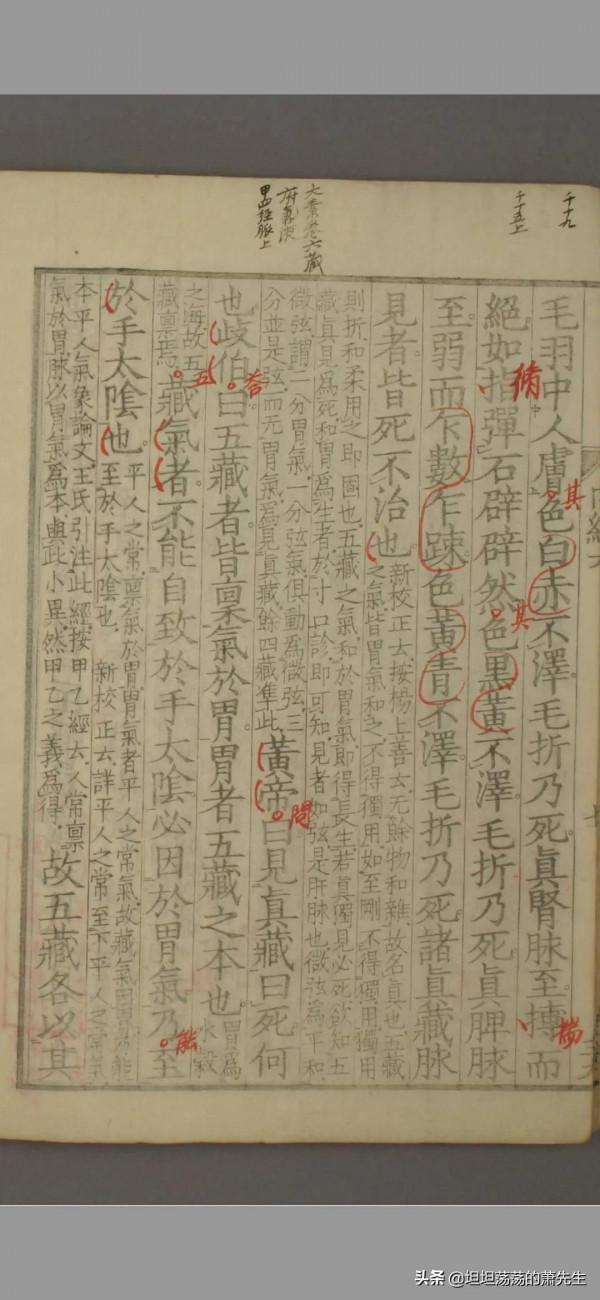 千十九
千十五上
大素卷六藏
府氣液
甲四經脈上
毛羽中人膚色白赤不澤毛折乃死眞腎脉至摶而
絕如指彈石辟辟然色黑黃不澤毛折乃死眞脾脉
至弱而乍數乍踈色黃青不澤毛折乃死諸眞藏脉
見者皆死不治也
新校正云按楊上善云无餘物和雜故名眞也五藏
之氣皆胃氣和之不得獨用如至剛不得獨用獨用
則折和柔用之即固也五藏之氣和於胃氣即得長生若眞獨見必死欲知五
藏眞見爲死和胃爲生者於寸口診即可知見者如弦是肝脉也微弦爲平和
微弦謂二分胃氣一分弦氣俱動爲微弦三
分並是弦而无胃氣爲見眞藏餘四藏準此
黃帝曰見眞藏曰死何
也歧伯曰五藏者皆稟氣於胃胃者五藏之本也
胃爲水穀
之海故五
藏稟焉
藏氣者不能自致於手太陰必因於胃氣乃至
於手太陰也
平人之常稟氣於胃胃氣者平人之常氣故藏氣因胃乃能
至於手太陰也 新校正云詳平人之常至下平人之常氣
本平人氣象論文王氏引注此經按甲乙經云人常稟
氣於胃脉以胃氣爲本與此小異然甲乙之義爲得
故五藏各以其
其
揣
循
其
問
答
五
能
内經六
头条 @坦坦荡荡的萧先生